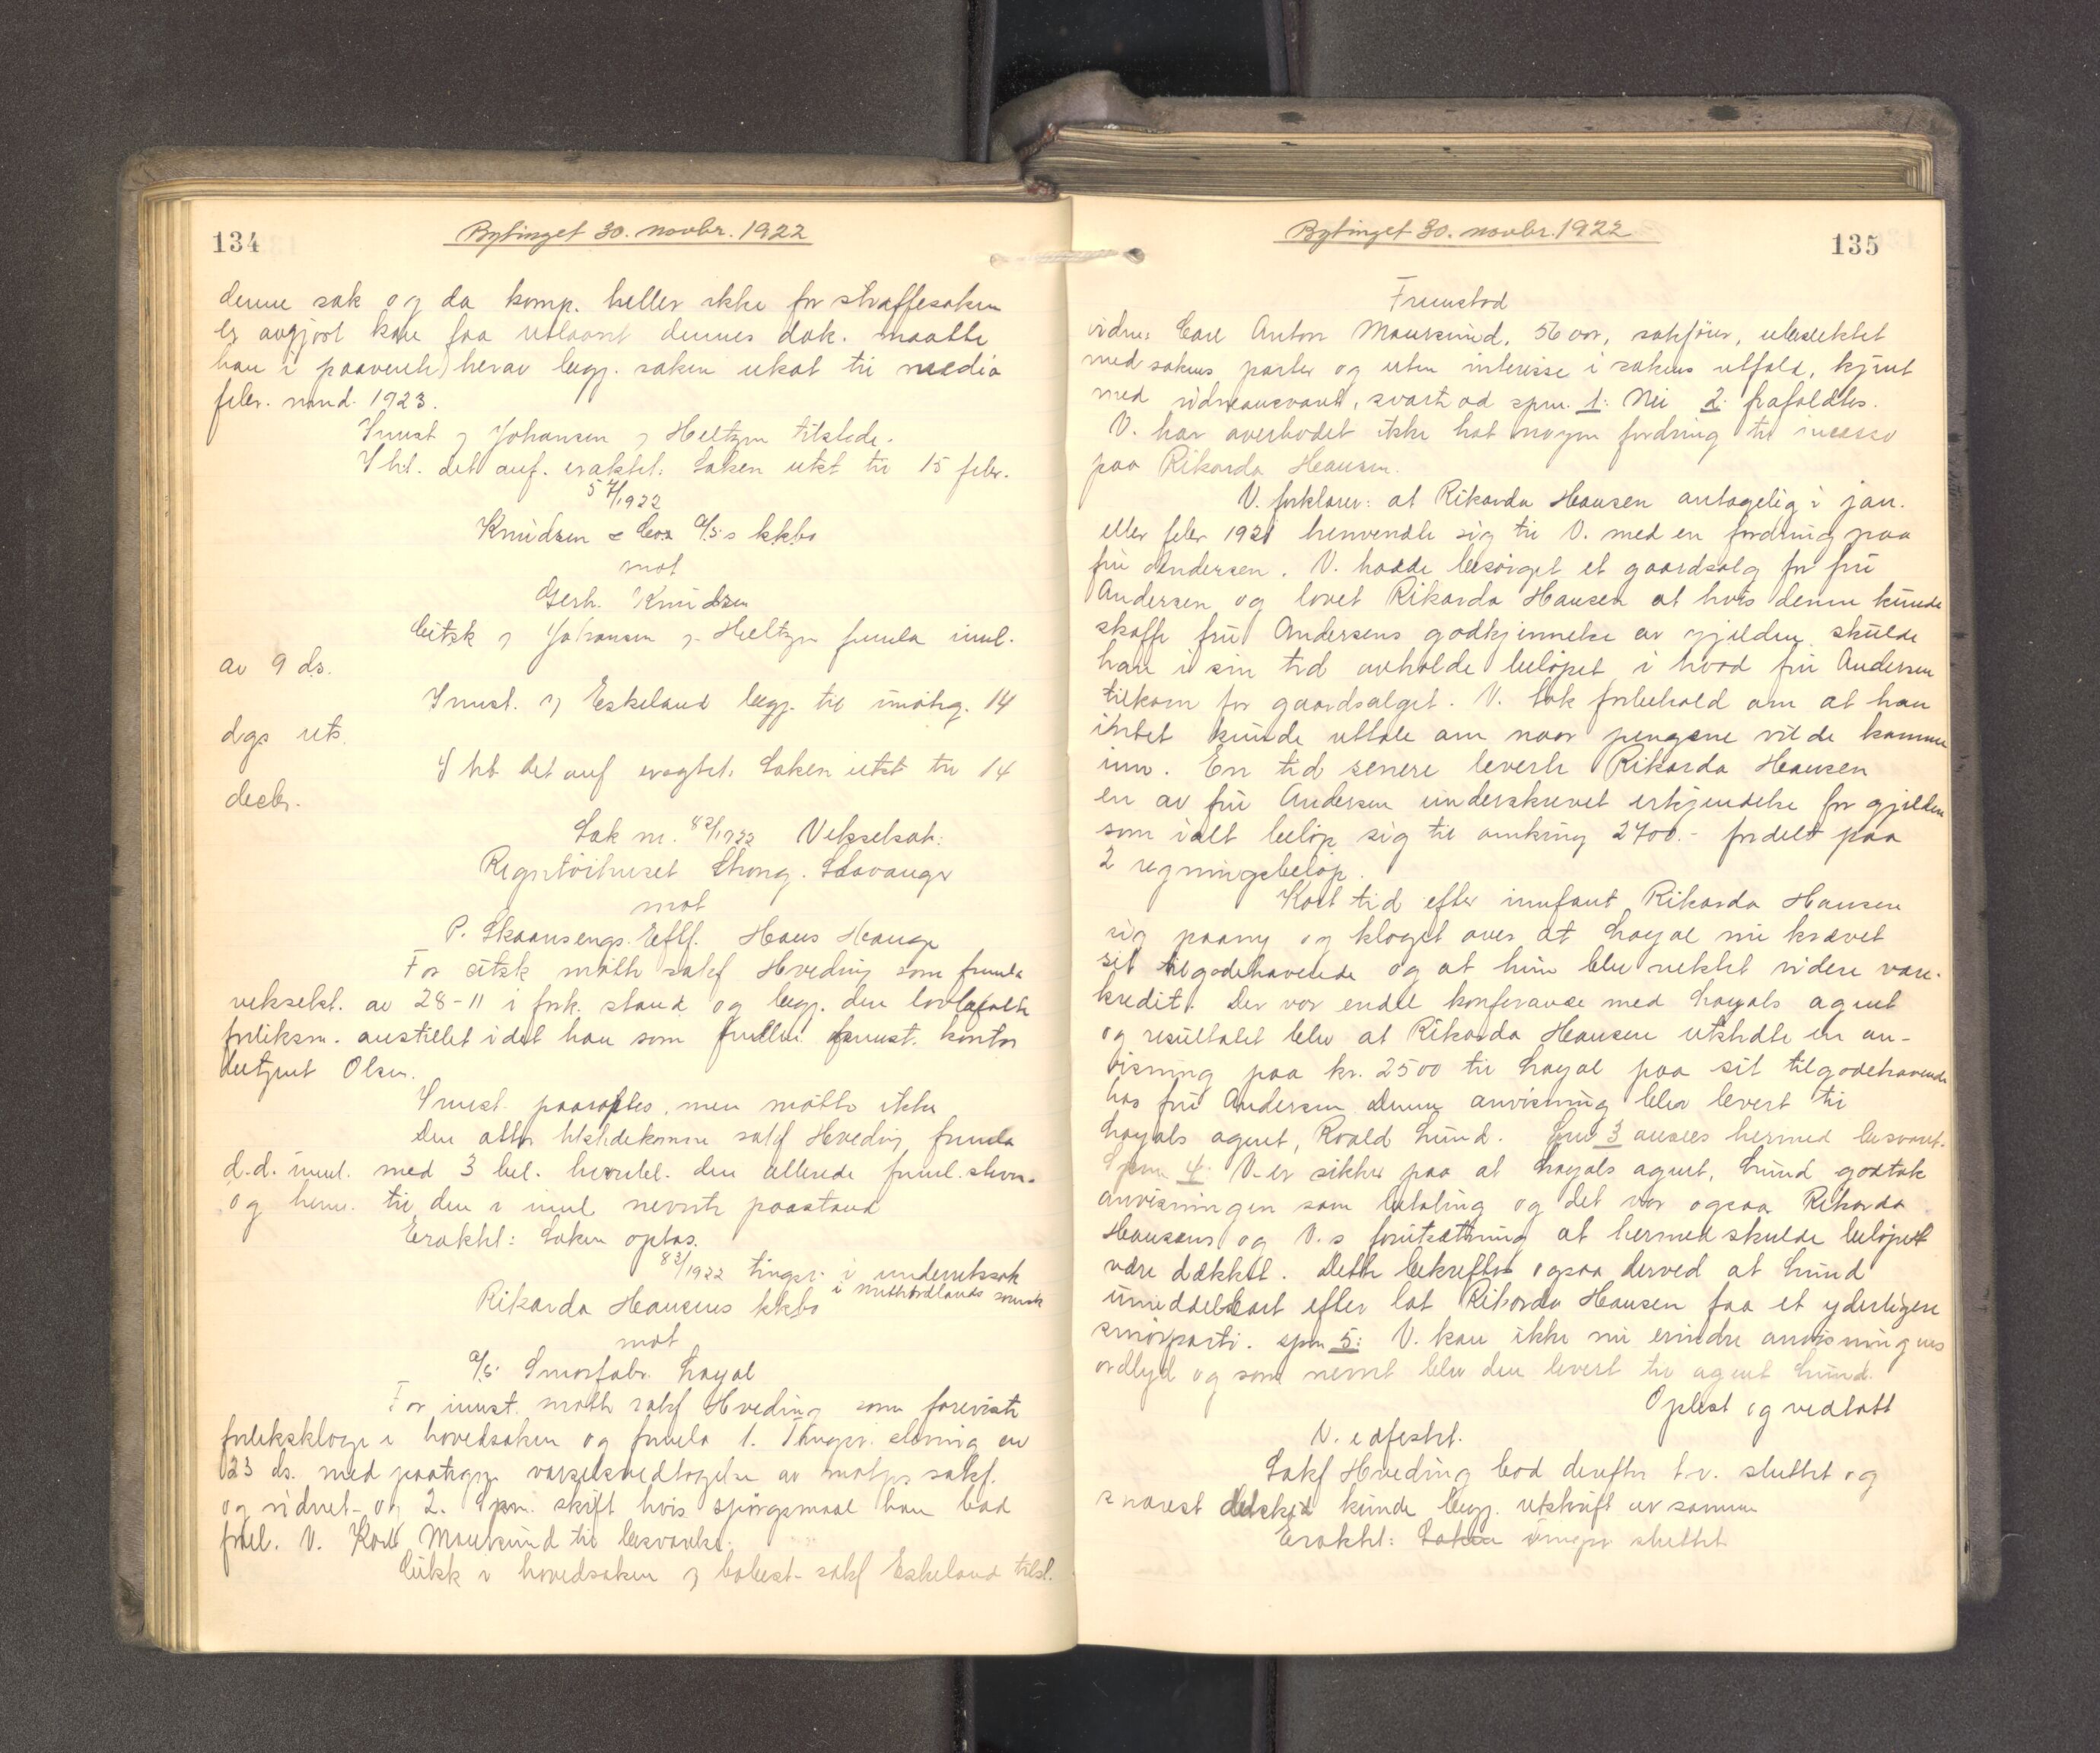 134
Bytinget 30. novbr. 1922
denne sak og da komp. heller ikke for straffesaken
er avgjort kan faa utlaant dennes dok. maatte
han i paavente herav begj. saken utsat til media
febr. mnd. 1923.
Innst. v Johansen v Heltzen tilstede.
I hl. det anf. eraktet: Saken utst til 15 febr.
57/1922
Knudsen & Co.s A/S's kkbo
mot
Gerh. Knudsen
Citsk v Johansen v Heltzen fremla innl.
av 9 ds.
Innst. v Eskeland begj. til imøtg. 14
dgs uts.
I ht det anf eragtet: Saken utst til 14
decbr.
Sak nr. 82/1922 Vekselsak:
Regntöihuset Strong. Stavanger
mot
P. Skaansengs Eftf. Hans Hauge
For citsk møtte sakf Hveding som fremla
vekselst. av 28-11 i fork. stand og begj. den lovbefalte
forliksm. anstillet idet han som fuldm. fremst. kontor
betjent Olsen.
Innst. paaroptes, men møtte ikke
Den atter tilstedekomne sakf Hveding fremla
d.d. innl. med 3 bil. hvoribl. den allerede freml. stevn.
og henv. til den i innl nevnte paastand
Eraktet: Saken optas.
83/1922 tingsv. i underretssak
i midthordlands sorensk
Rikarda Hansens kkbo
mot
A/S. Smørfabr. Loyal
For innst. møtte sakf Hveding som foreviste
forliksklage i hovedsaken og fremla 1. Tingsv. stevning av
23 ds. med paategn. varselsvedtagelse av motps sakf.
og vidnet- og 2. Spm. skrift hvis spørgsmaal han bad
frel. V. Karl Maursund til besvarelse.
Citsk i hovedsaken v bobest- sakf Eskeland tilst.
135
Bytinget 30. novbr. 1922
Fremstod
vidne: Carl Anton Maursund, 56 aar, sakfører, ubeslektet
med sakens parter og uten interesse i sakens utfald, kjent
med vidneansvaret, svarte ad spm. 1: Nei 2: frafaldtes.
V. har overhodet ikke hat nogen fordring til incasso
paa Rikarda Hansen.
V. forklarer: at Rikarda Hansen antagelig i jan.
eller febr 1921 henvendte sig til V. med en fordring paa
fru Andersen. V. hadde besørget et gaardsalg for fru
Andersen og lovet Rikarda Hansen at hvis denne kunde
skaffe fru Andersens godkjennelse av gjelden skulde
han i sin tid avholde beløpet i hvad fru Andersen
tilkom for gaardsalget. V. tok forbehold om at han
intet kunde uttale om naar pengene vilde komme
inn. En tid senere leverte Rikarda Hansen
en av fru Andersen underskrevet erkjendelse for gjelden
som ialt beløp sig til omkring 2700.- fordelt paa
2 regningsbeløp.
Kort tid efter innfant Rikarda Hansen
sig paany og klaget over at Loyal nu krævet
sit tilgodehavende og at hun blev nektet videre vare-
kredit. Der var endel konferanse med Loyals agent
og resultatet blev at Rikarda Hansen utstedte en an-
visning paa kr. 2500 til Loyal paa sit tilgodehavende
hos fru Andersen. Denne anvisning blev levert til
Loyals agent, Roald Lund. Spm 3 ansees hermed besvart.
Spm 4: V. er sikker paa at Loyals agent, Lund godtok
anvisningen som betaling og det var ogsaa Rikarda
Hansens og V.s forutsætning at hermed skulde beløpet
være dækket. Dette bekræftes ogsaa derved at Lund
umiddelbart efter lot Rikarda Hansen faa et yderligere
smørparti. spm 5: V. kan ikke nu erindre anvisningens
ordlyd og som nevnt blev den levert til agent Lund.
Oplest og vedtatt
V. edfestet.
Sakf Hveding bad derefter t.v. sluttet og
snarest kunde begj. utskrift av samme
Eraktet: Saken tingsv sluttet